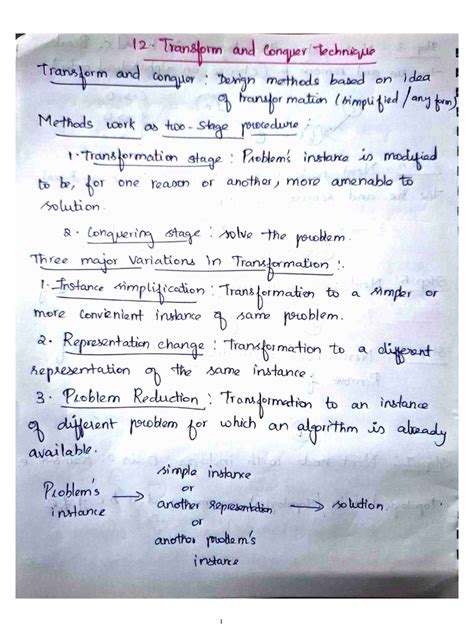 12. Transform and Conquer Technique
Transform and conquor : Design methods based on idea
of transformation (simplified / any form)
Methods work as two-stage procedure :
1. Transformation stage : Problem's instance is modified
to be, for one reason or another, more amenable to
solution.
2. Conquering stage : solve the problem.
Three major Variations in Transformation :
1. Instance simplification : Transformation to a simper or
more convienient instance of same problem.
2. Representation change : Transformation to a different
representation of the same instance.
3. Problem Reduction : Transformation to an instance
of different problem for which an algorithm is already
available.
Problem's instance → simple instance
or
another representation → solution.
or
another problem's
instance
1